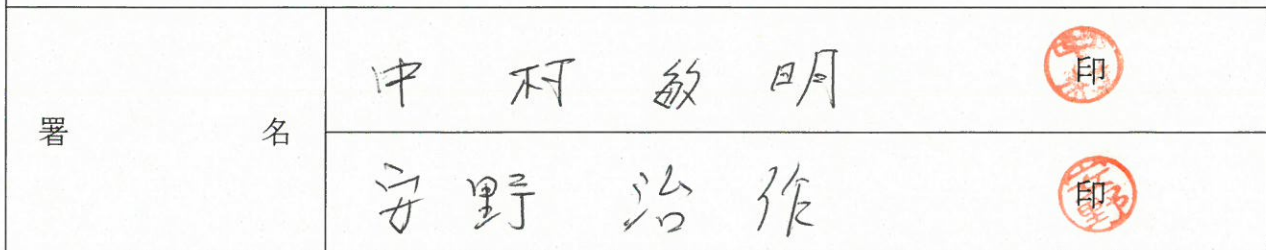 署名
中村敏明 印
安野治作 印